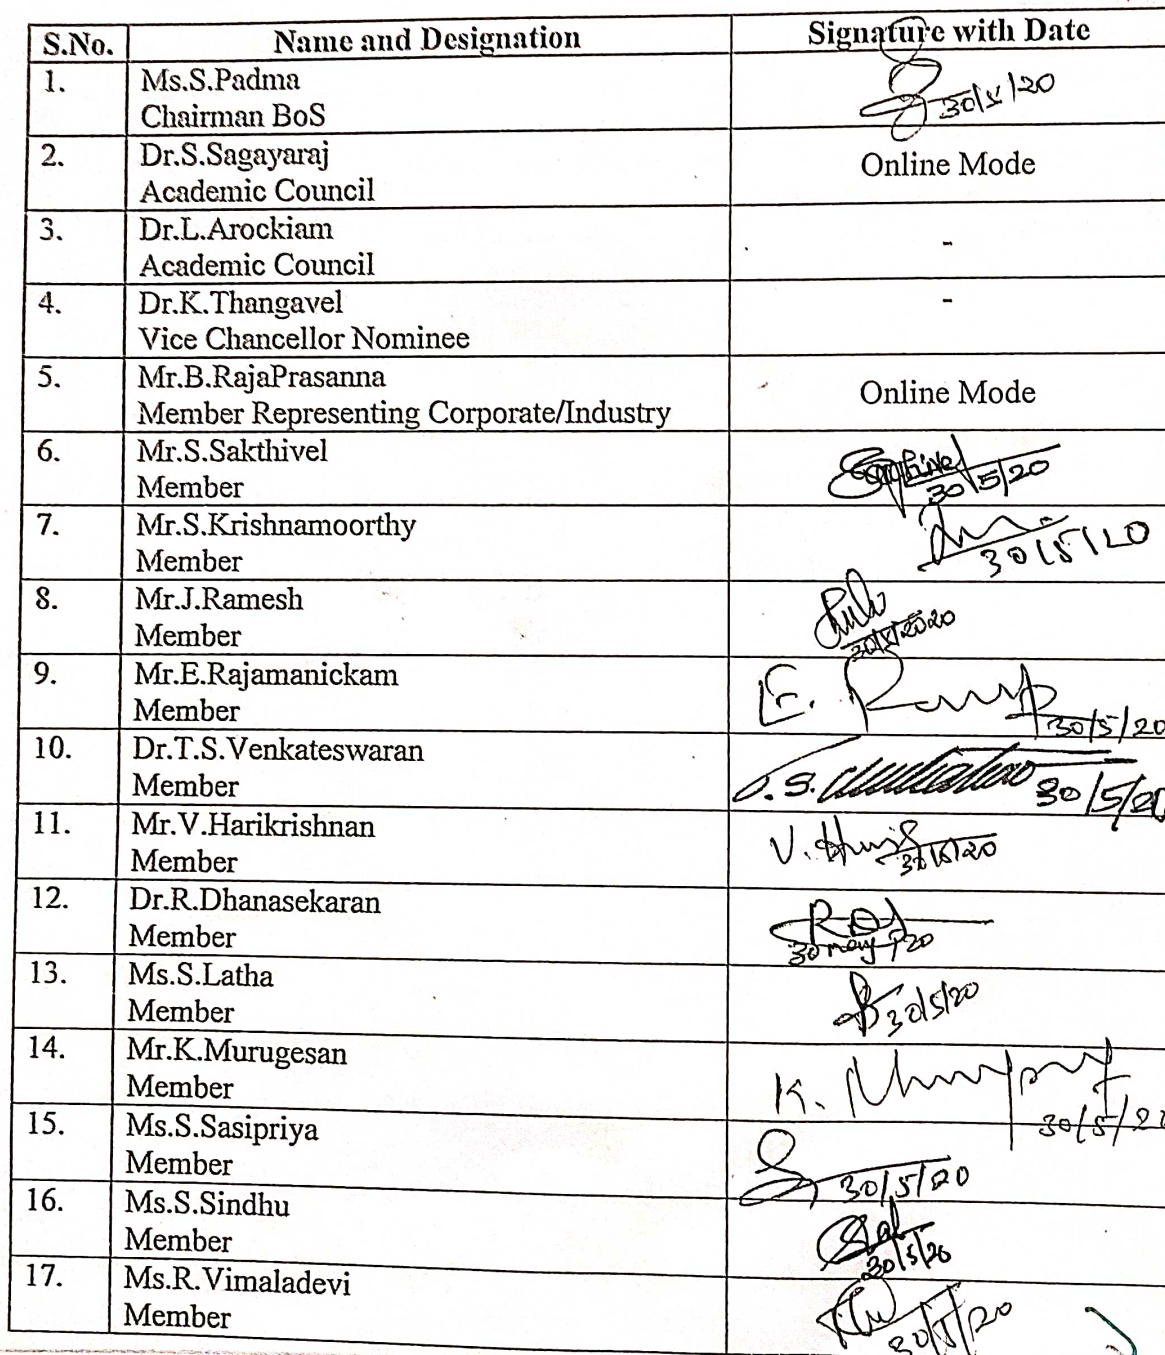 S.No. Name and Designation Signature with Date
1. Ms.S.Padma
Chairman BoS
30/5/20
2. Dr.S.Sagayaraj
Academic Council
Online Mode
3. Dr.L.Arockiam
Academic Council
-
4. Dr.K.Thangavel
Vice Chancellor Nominee
-
5. Mr.B.RajaPrasanna
Member Representing Corporate/Industry
Online Mode
6. Mr.S.Sakthivel
Member
30/5/20
7. Mr.S.Krishnamoorthy
Member
30/5/20
8. Mr.J.Ramesh
Member
30/5/2020
9. Mr.E.Rajamanickam
Member
E.
30/5/20
10. Dr.T.S.Venkateswaran
Member
T.S.
30/5/20
11. Mr.V.Harikrishnan
Member
V.
30/5/20
12. Dr.R.Dhanasekaran
Member
30 may 20
13. Ms.S.Latha
Member
30/5/20
14. Mr.K.Murugesan
Member
K.
30/5/20
15. Ms.S.Sasipriya
Member
30/5/20
16. Ms.S.Sindhu
Member
30/5/20
17. Ms.R.Vimaladevi
Member
30/5/20